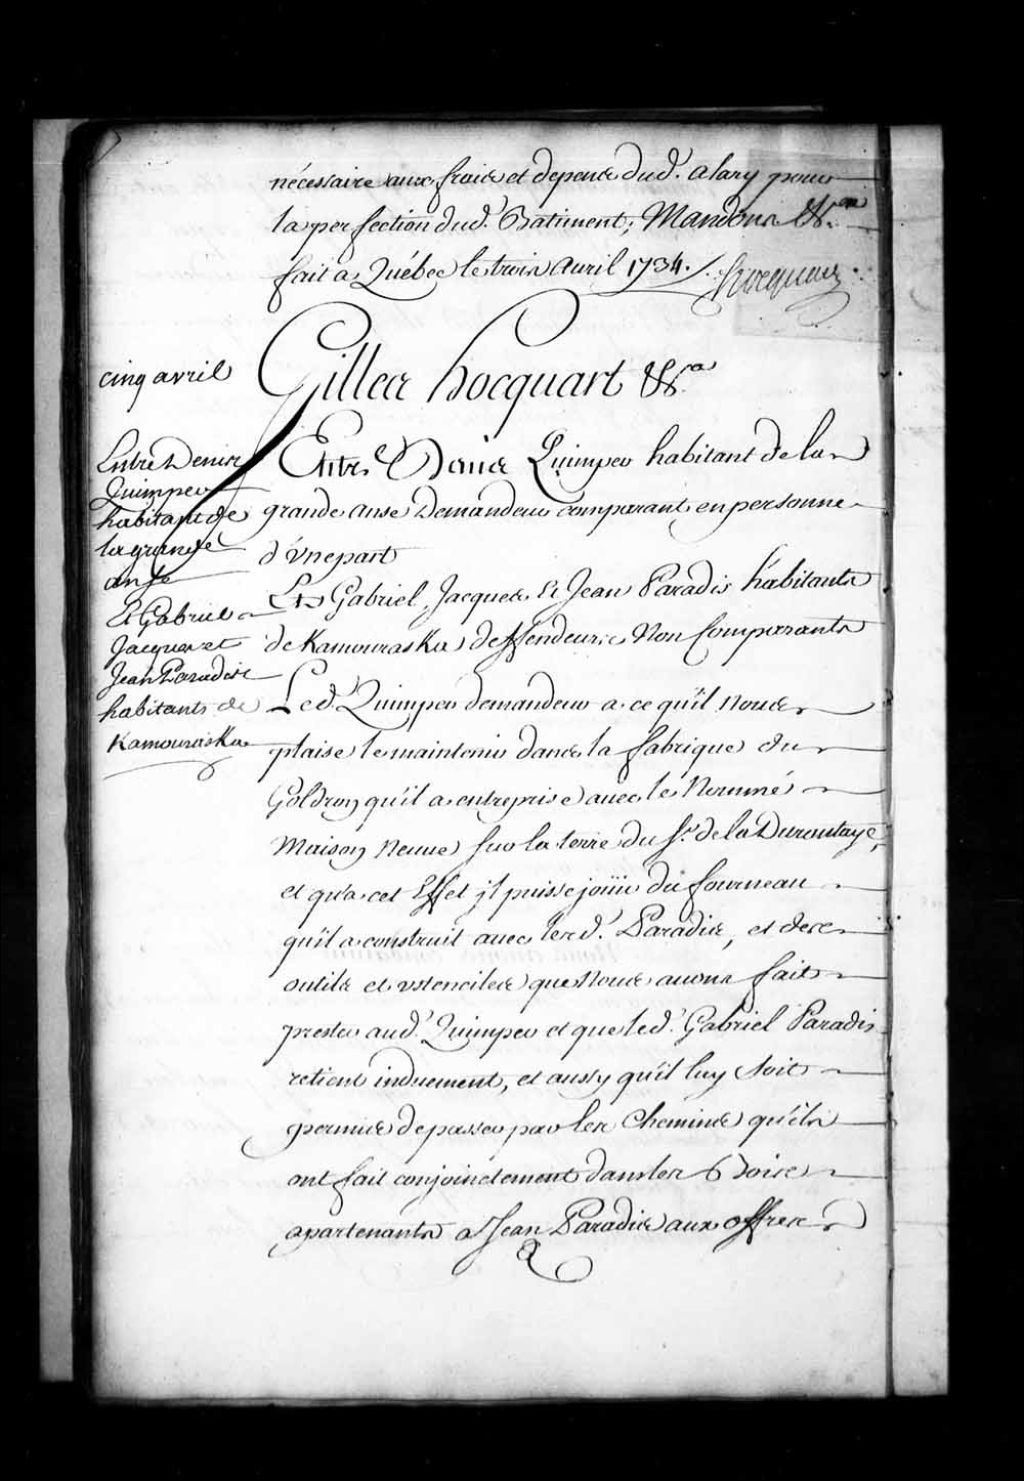 nécessaire aux frais et depens dud. alary pour
la perfection dud. Batiment, Mandons &ca
fait a Québec le trois avril 1734. /. hocquart
cinq avril
Gilles hocquart &ca
Entre Denis
Quimper
habitant de
la grande
anse
Et Gabriel
Jacques et
Jean Paradis
habitants de
Kamouraska
Entre Denis Quimper habitant de la
grande anse Demandeur comparant en personne
d'vne part
Et Gabriel, Jacques Et Jean Paradis habitants
de Kamouraska deffendeurs Non Comparants
Led. Quimper demandeur a ce qu'il nous
plaise le maintenir dans la fabrique du
Goldron qu'il a entreprise avec le Nommé
Maison Neuve sur la terre du Sr. de la Durantaye,
et qu'a cet Effet jl puisse joüir du fourneau
qu'il a construit avec lesd. Paradis, et des
outils et vstenciles que Nous avons fait
prester aud. Quimper et que led. Gabriel Paradis
retient induement, et aussy qu'il luy soit
permis de passer par les Chemins qu'ils
ont fait conjoinctement dans les Bois
apartenants a Jean Paradis aux offres